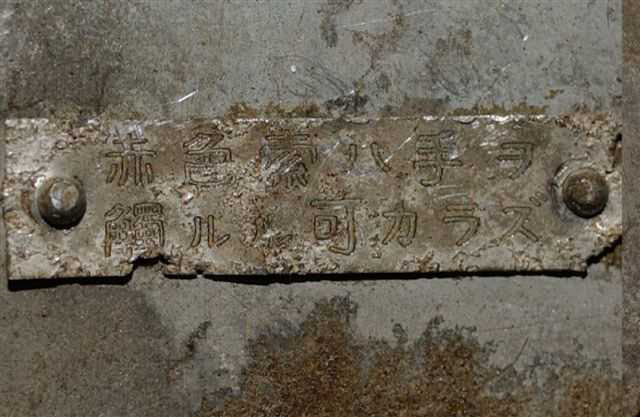 赤色索ハ手ヲ
觸ルル可カラズ